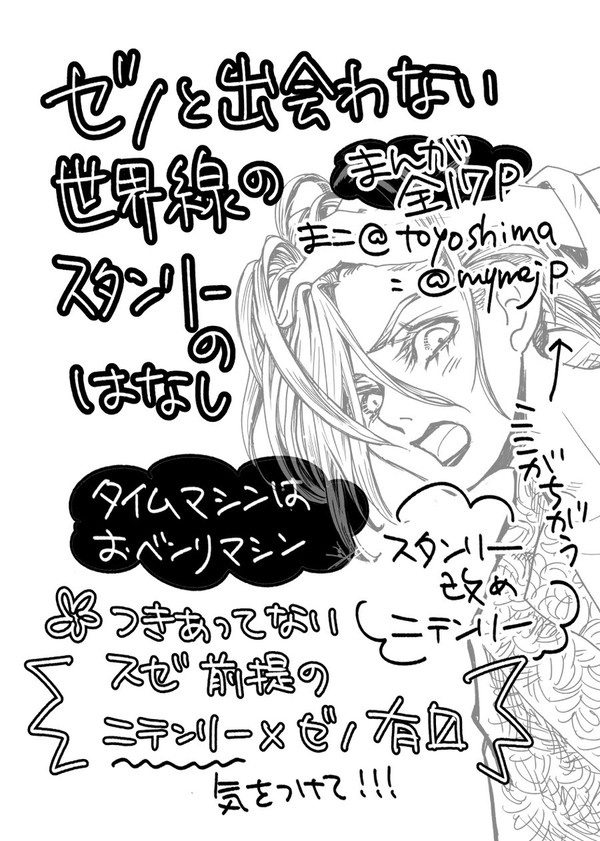 ゼノと出会わない
世界線の
スタンリー
の
はなし
まんが
全17P
まこ@toyoshima
〃@mymejp
↑ここがちがう
タイムマシンは
おベンリマシン
スタンリー
改め
ニテンリー
つきあってない
スゼ前提の
ニテンリー×ゼノ有
気をつけて!!!